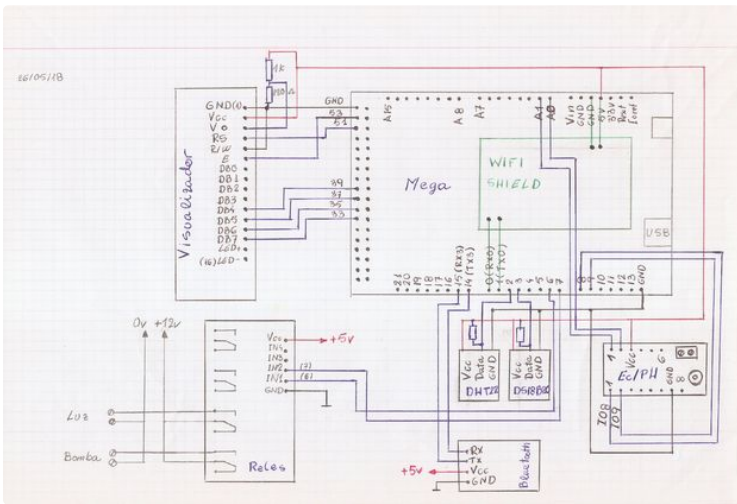 26/05/18
1K
Visualizador
GND(1)
Vcc
VO
RS
R/W
E
DB0
DB1
DB2
DB3
DB4
DB5
DB6
DB7
LED+
(16)LED-
GND
53
51
39
37
35
33
Mega
A15
A8
A7
A1
A0
Vin
GND
GND
5V
33V
WIFI
SHIELD
USB
21
20
19
18
17
16
15(RX3)
14(TX3)
0(RX0)
1(TX0)
2
3
4
5
6
7
8
9
10
11
12
13
GND
0v +12v
Luz
Bomba
Vcc
IN4
IN3
IN2 (7)
IN1 (6)
GND
+5v
Reles
Vcc
Data
GND
DHT22
Vcc
Data
GND
DS18B20
RX
TX
Vcc
GND
+5v
Bluetooth
1
Vcc
6
Ec/PH
1
GND
8
IO8
IO9